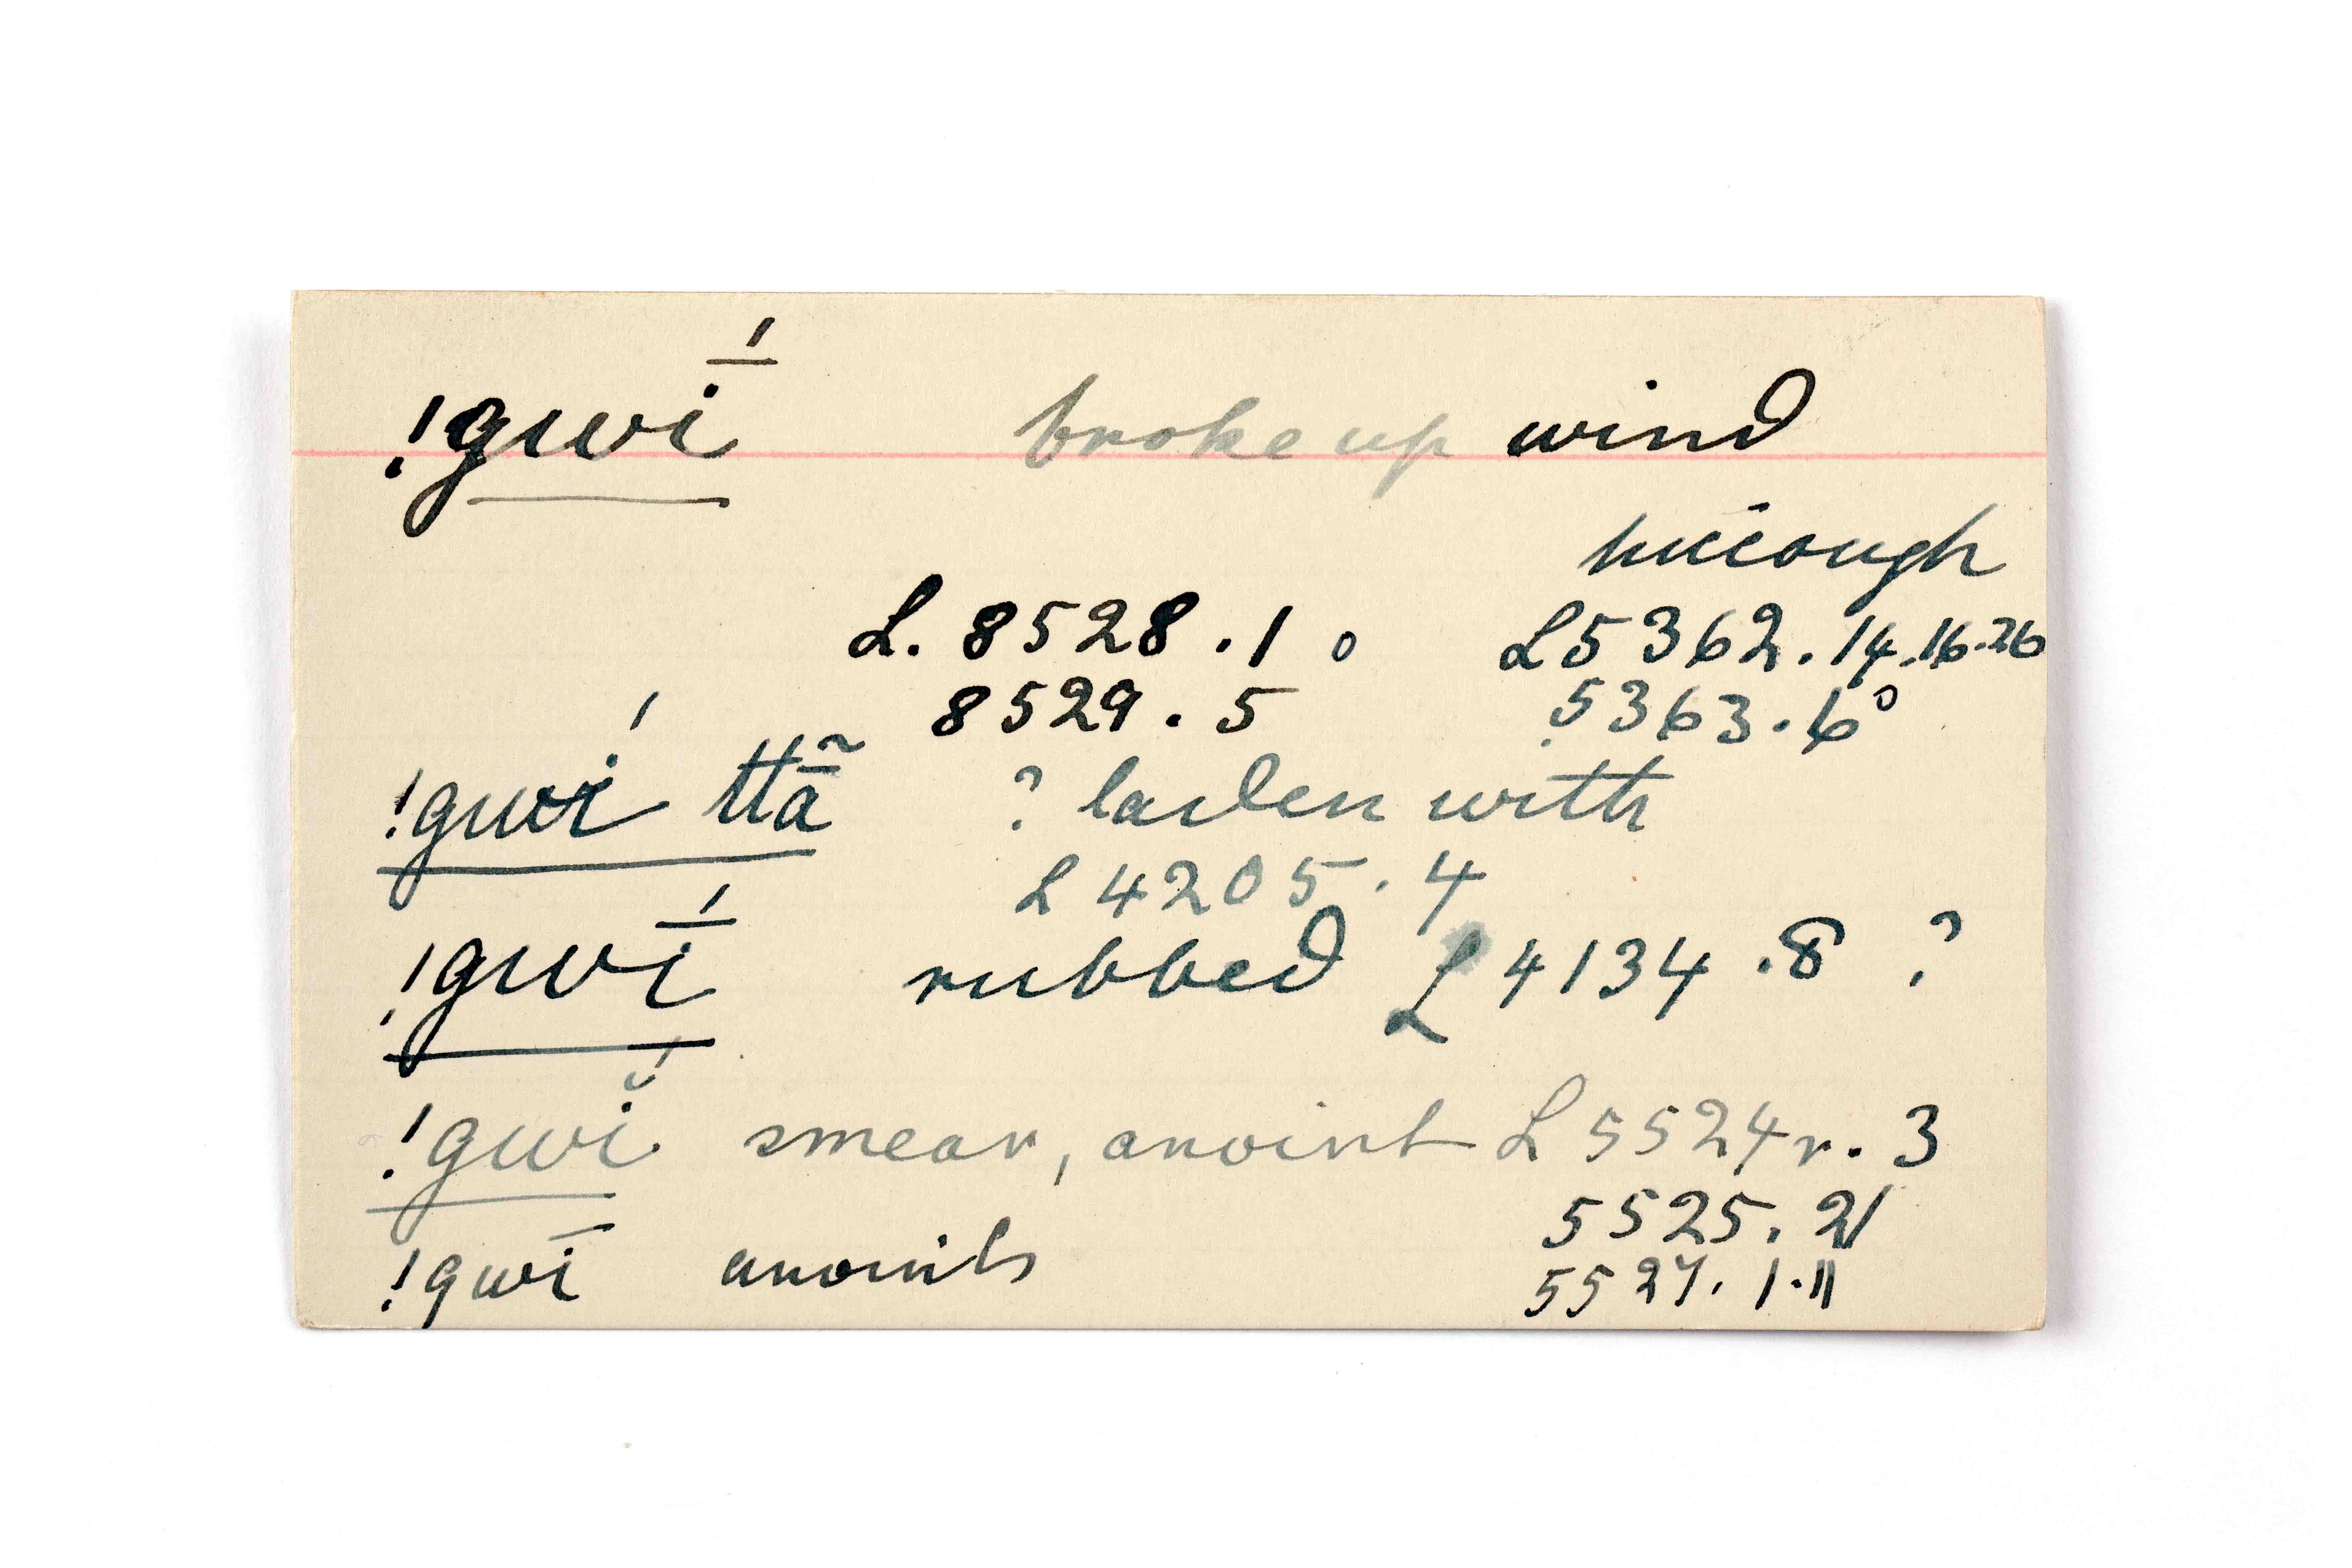 !gwī́ broke up wind
hiccough
L. 8528.10 L5362.14.16.26
8529.5 5363.6°
!gwí ttā̃ ? laden with
L 4205.4
!gwī́ rubbed L 4134.8 ?
!gwĭ́ smear, anoint L 5524r.3
5525.21
!gwī anoints 5527.1.11